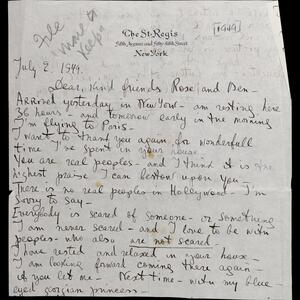 File
[1949]
The St. Regis
Fifth Avenue and Fifty-fifth Street
New York
July 2. 1949.
Dear, kind friends Rose and Ben -
Arrived yesterday in New York - am resting here
36 hours - and tomorrow early in the morning
I'm flying to Paris -
I want to thank you again for wonderfull
time I've spent in your house.
You are real peoples - and I think it is the
highest praise I can bestow upon you -
There is no real peoples in Hollywood - I'm
sorry to say -
Everybody is scared of someone - or something
I am never scared - and I love to be with
peoples - who also are not scared.
I have rested and relaxed in your house -
I am looking forward coming there again -
if you let me - Next time - with my blue
eyed georgian princess -